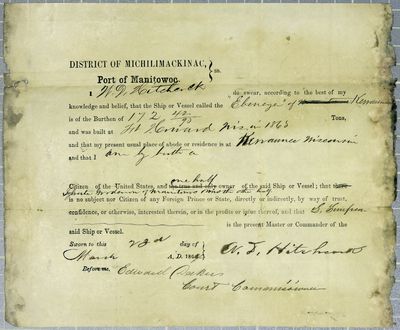 DISTRICT OF MICHILIMACKINAC, } ss.
Port of Manitowoc.
I W D Hitchcock do swear, according to the best of my
knowledge and belief, that the Ship or Vessel called the "Ebenezer" of Kewaunee
is of the Burthen of 172 42/95 Tons,
and was built at Ft Howard Wis in 1863
and that my present usual place of abode or residence is at Kewaunee Wisconsin
and that I am by birth a
Citizen of the United States, and one half owner of the said Ship or Vessel; that
is no subject nor Citizen of any Foreign Prince or State, directly or indirectly, by way of trust,
confidence, or otherwise, interested therein, or in the profits or issues thereof, and that S. Simpson
is the present Master or Commander of the
said Ship or Vessel.
Sworn to this 23d day of
March A. D. 186
Before me, Edward
Court Commissioner
W. D. Hitchcock